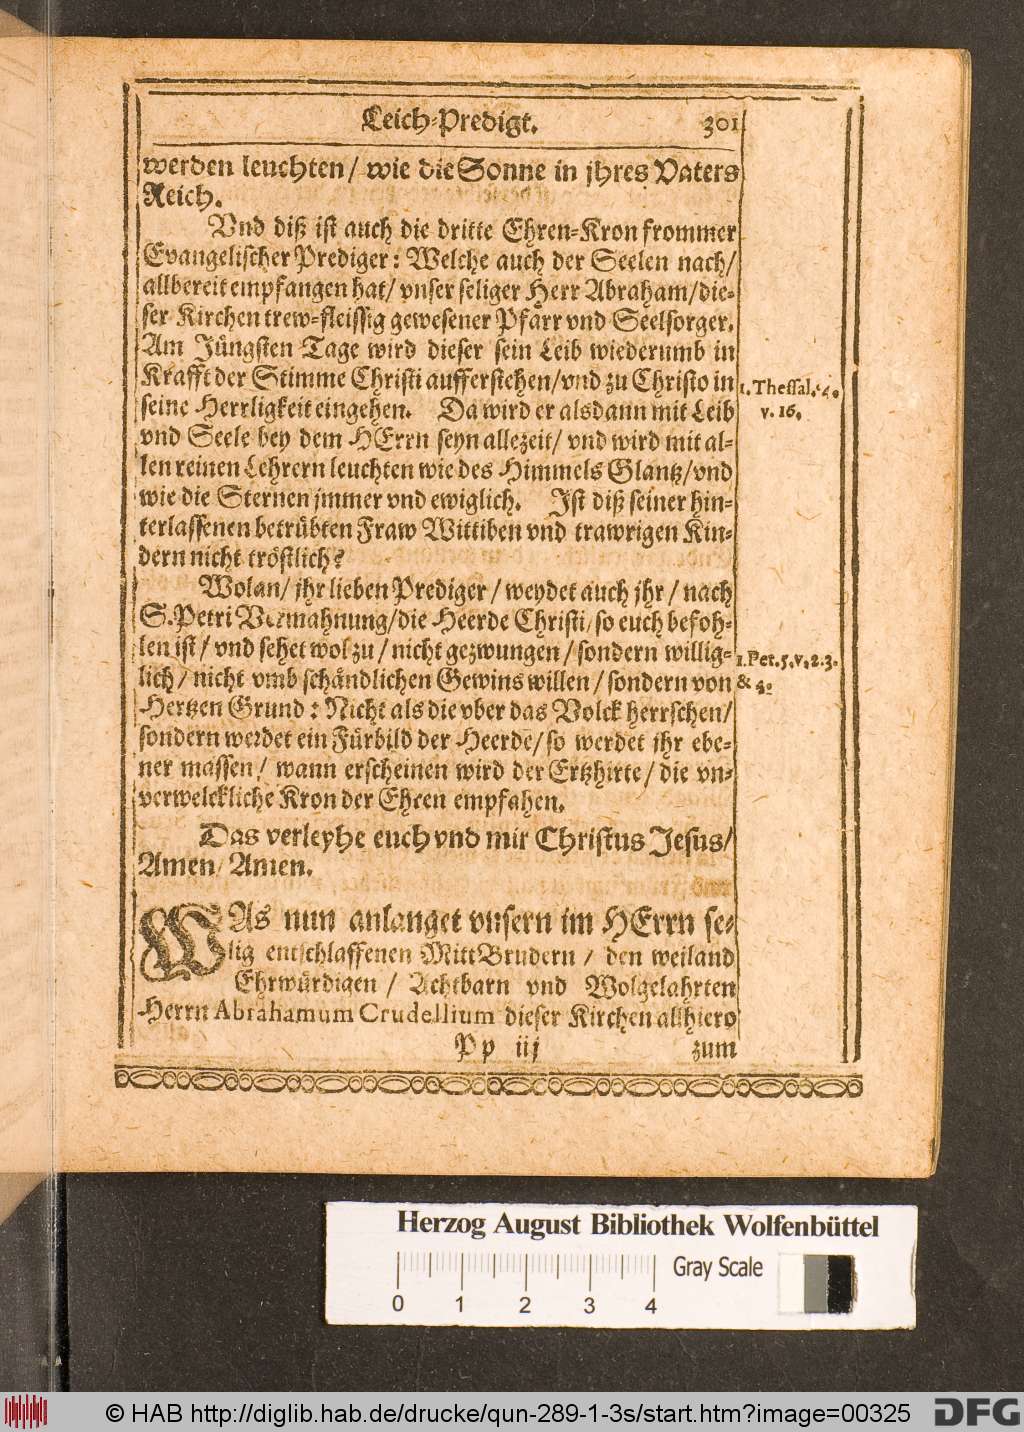 Leich-Predigt. 301
werden leuchten/ wie die Sonne in jhres Vaters
Reich.
Vnd diß ist auch die dritte Ehren-Kron frommer
Evangelischer Prediger: Welche auch der Seelen nach/
allbereit empfangen hat/ vnser seliger Herr Abraham/ die-
ser Kirchen trew-fleissig gewesener Pfarr vnd Seelsorger.
Am Jüngsten Tage wird dieser sein Leib wiederumb in
Krafft der Stimme Christi aufferstehen/ vnd zu Christo in
1. Thessal. 4.
seine Herrligkeit eingehen. Da wird er alsdann mit Leib
v. 16.
vnd Seele bey dem HErrn seyn allezeit/ vnd wird mit al-
len reinen Lehrern leuchten wie des Himmels Glantz/ vnd
wie die Sternen jmmer vnd ewiglich. Ist diß seiner hin-
terlassenen betrübten Fraw Wittiben vnd trawrigen Kin-
dern nicht tröstlich?
Wolan/ jhr lieben Prediger/ weydet auch jhr/ nach
S. Petri Vermahnung/ die Heerde Christi/ so euch befoh-
len ist/ vnd sehet wol zu/ nicht gezwungen/ sondern willig-
1. Pet. 5. v. 2. 3.
lich/ nicht vmb schändlichen Gewins willen/ sondern von
& 4.
Hertzen Grund: Nicht als die vber das Volck herrschen/
sondern werdet ein Fürbild der Heerde/ so werdet jhr ebe-
ner massen/ wann erscheinen wird der Ertzhirte/ die vn-
verwelckliche Kron der Ehren empfahen.
Das verleyhe euch vnd mir Christus Jesus/
Amen/ Amen.
WAs nun anlanget vnsern im HErrn se-
lig entschlaffenen MittBrudern/ den weiland
Ehrwürdigen/ Achtbarn vnd Wolgelahrten
Herrn Abrahamum Crudelium dieser Kirchen allhiero
Pp iij zum
Herzog August Bibliothek Wolfenbüttel
Gray Scale
0 1 2 3 4
© HAB http://diglib.hab.de/drucke/qun-289-1-3s/start.htm?image=00325
DFG